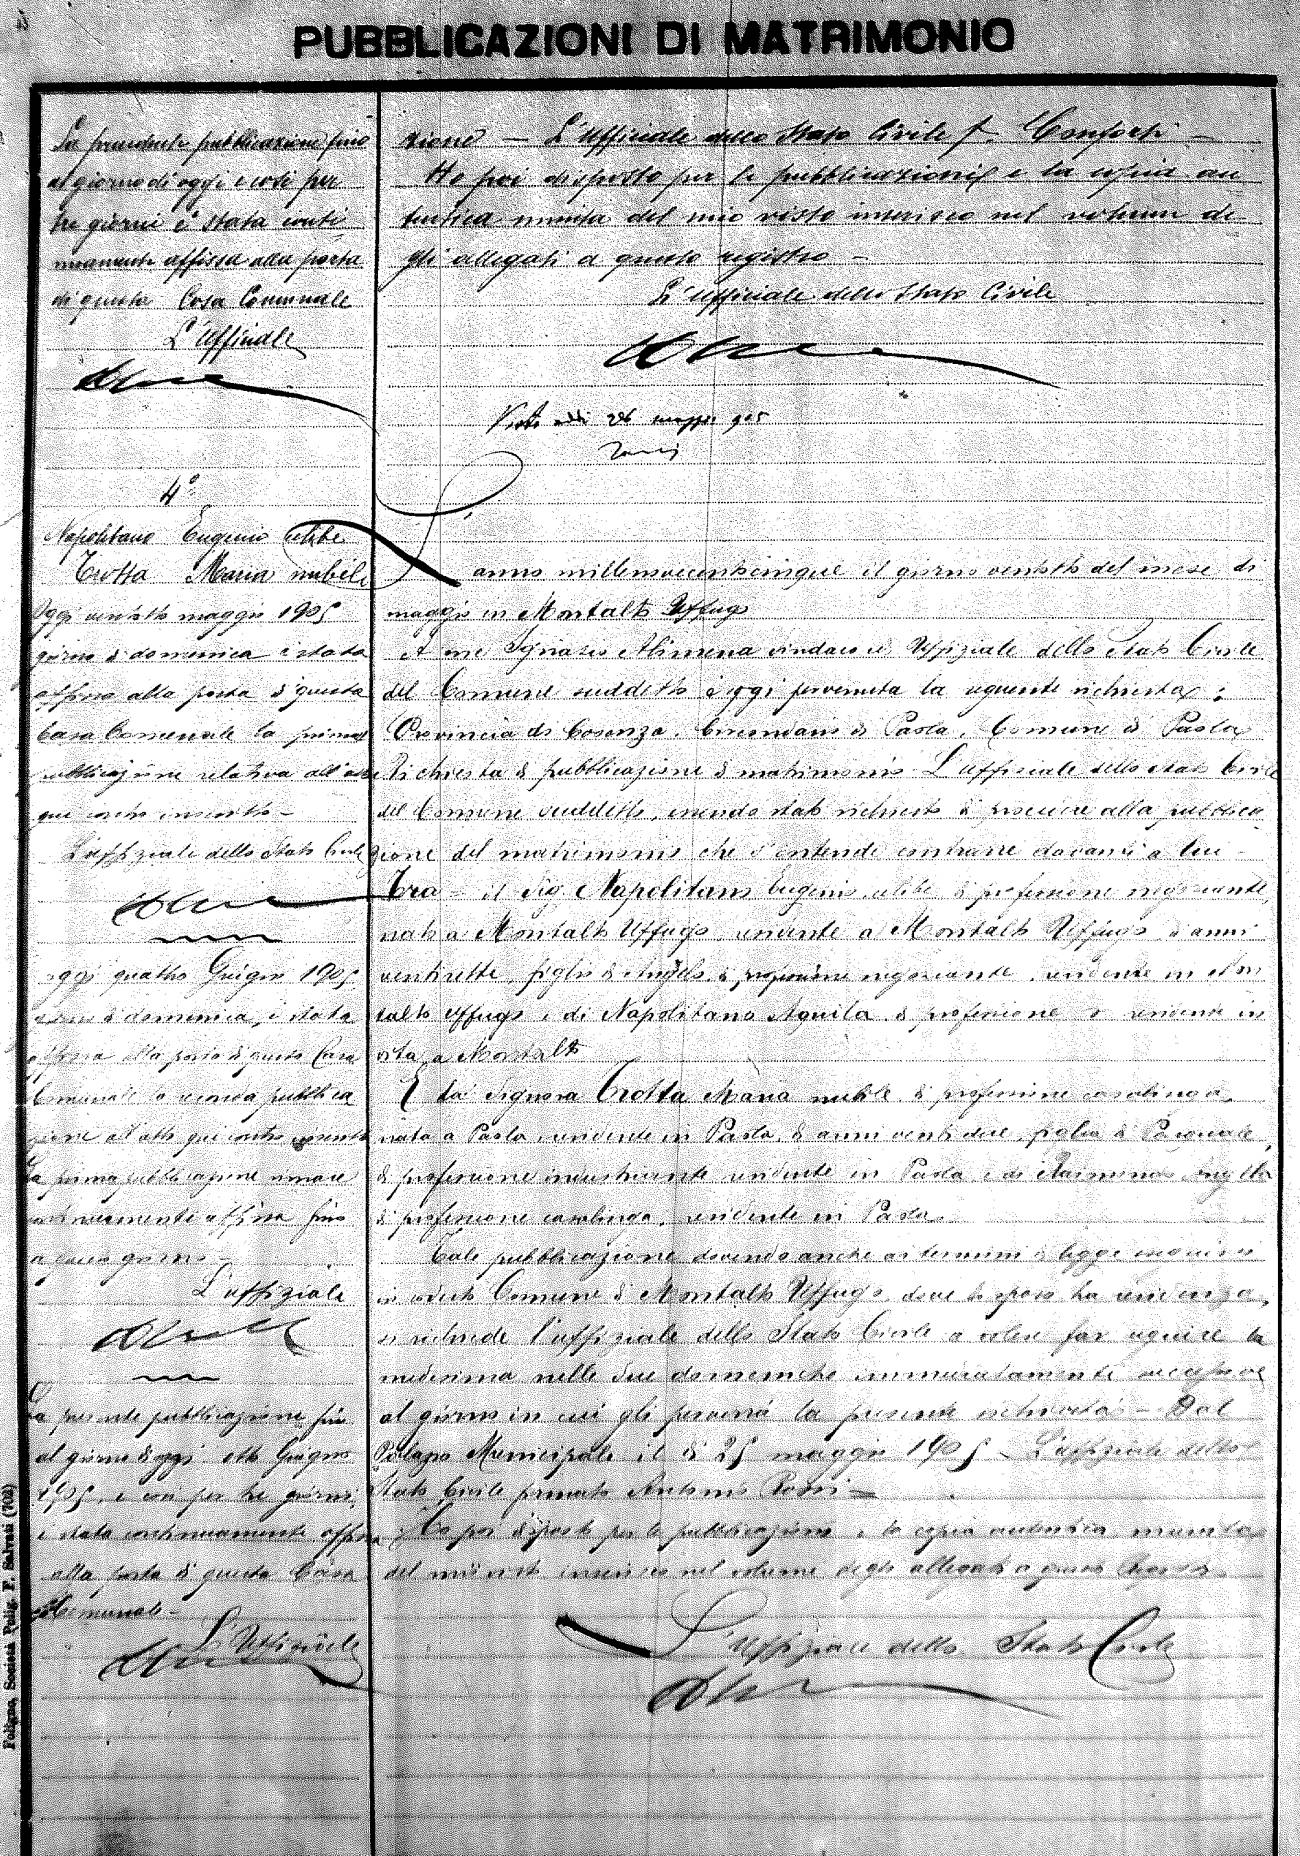 PUBBLICAZIONI DI MATRIMONIO
La precedente pubblicazione fino
al giorno di oggi e così per
tre giorni è stata conti
nuamente affissa alla porta
di questa Casa Comunale
L'Uffiziale
4°
Napolitano Eugenio celibe
Trotta Maria nubile
Oggi ventotto maggio 1905
giorno di domenica è stata
affissa alla porta di questa
Casa Comunale la prima
pubblicazione relativa all'atto
qui contro inscritto -
L'uffiziale dello Stato Civile
oggi quattro Giugno 1905
giorno di domenica, è stata
affissa alla porta di questa Casa
Comunale la seconda pubblica
zione all'atto qui contro inscritto
La prima pubblicazione rimase
continuamente affissa fino
a questo giorno -
L'uffiziale
La presente pubblicazione fino
al giorno di oggi otto Giugno
1905, e così per tre giorni,
è stata continuamente affissa
alla porta di questa Casa
Comunale -
L'Uffiziale
zione - L'Ufficiale dello Stato Civile f. Conforti -
Ho poi disposto per le pubblicazioni e la copia au
tentica munita del mio visto inserisco nel volume de
gli allegati a questo registro -
L'Ufficiale dello Stato Civile
Visto addì 26 maggio 905
L'anno millenovecentocinque il giorno ventotto del mese di
maggio in Montalto Uffugo
A me Ignazio Alimena sindaco ed Uffiziale dello Stato Civile
del Comune suddetto è oggi pervenuta la seguente richiesta:
Provincia di Cosenza. Circondario di Paola. Comune di Paola
Richiesta di pubblicazione di matrimonio - L'uffiziale dello Stato Civile
del Comune suddetto, essendo stato richiesto di procedere alla pubblica
zione del matrimonio che s'intende contrarre davanti a lui -
Tra - il Sig. Napolitano Eugenio, celibe di professione negoziante,
nato a Montalto Uffugo, residente a Montalto Uffugo, di anni
ventisette, figlio di Angelo, di professione negoziante, residente in Mon
talto Uffugo e di Napolitano Aquila, di professione residente in
vita a Montalto
E la signora Trotta Maria nubile di professione casalinga,
nata a Paola, residente in Paola, di anni ventidue, figlia di Pasquale,
di professione industriante residente in Paola e di
di professione casalinga, residente in Paola
Tale pubblicazione dovendo anche ai termini di legge eseguirsi
in codesto Comune di Montalto Uffugo, dove lo sposo ha residenza,
si richiede l'uffiziale dello Stato Civile a voler far eseguire la
medesima nelle due domeniche immediatamente successive
al giorno in cui gli perverrà la presente richiesta - Dal
Palazzo Municipale il dì 25 maggio 1905 - L'uffiziale dello
Stato Civile firmato Antonio
Ho poi disposto per la pubblicazione, e la copia autentica, munita
del mio visto inserisco nel volume degli allegati a questo Registro
L'Uffiziale dello Stato Civile
Foligno, Società Polig. F. Salvati (702)